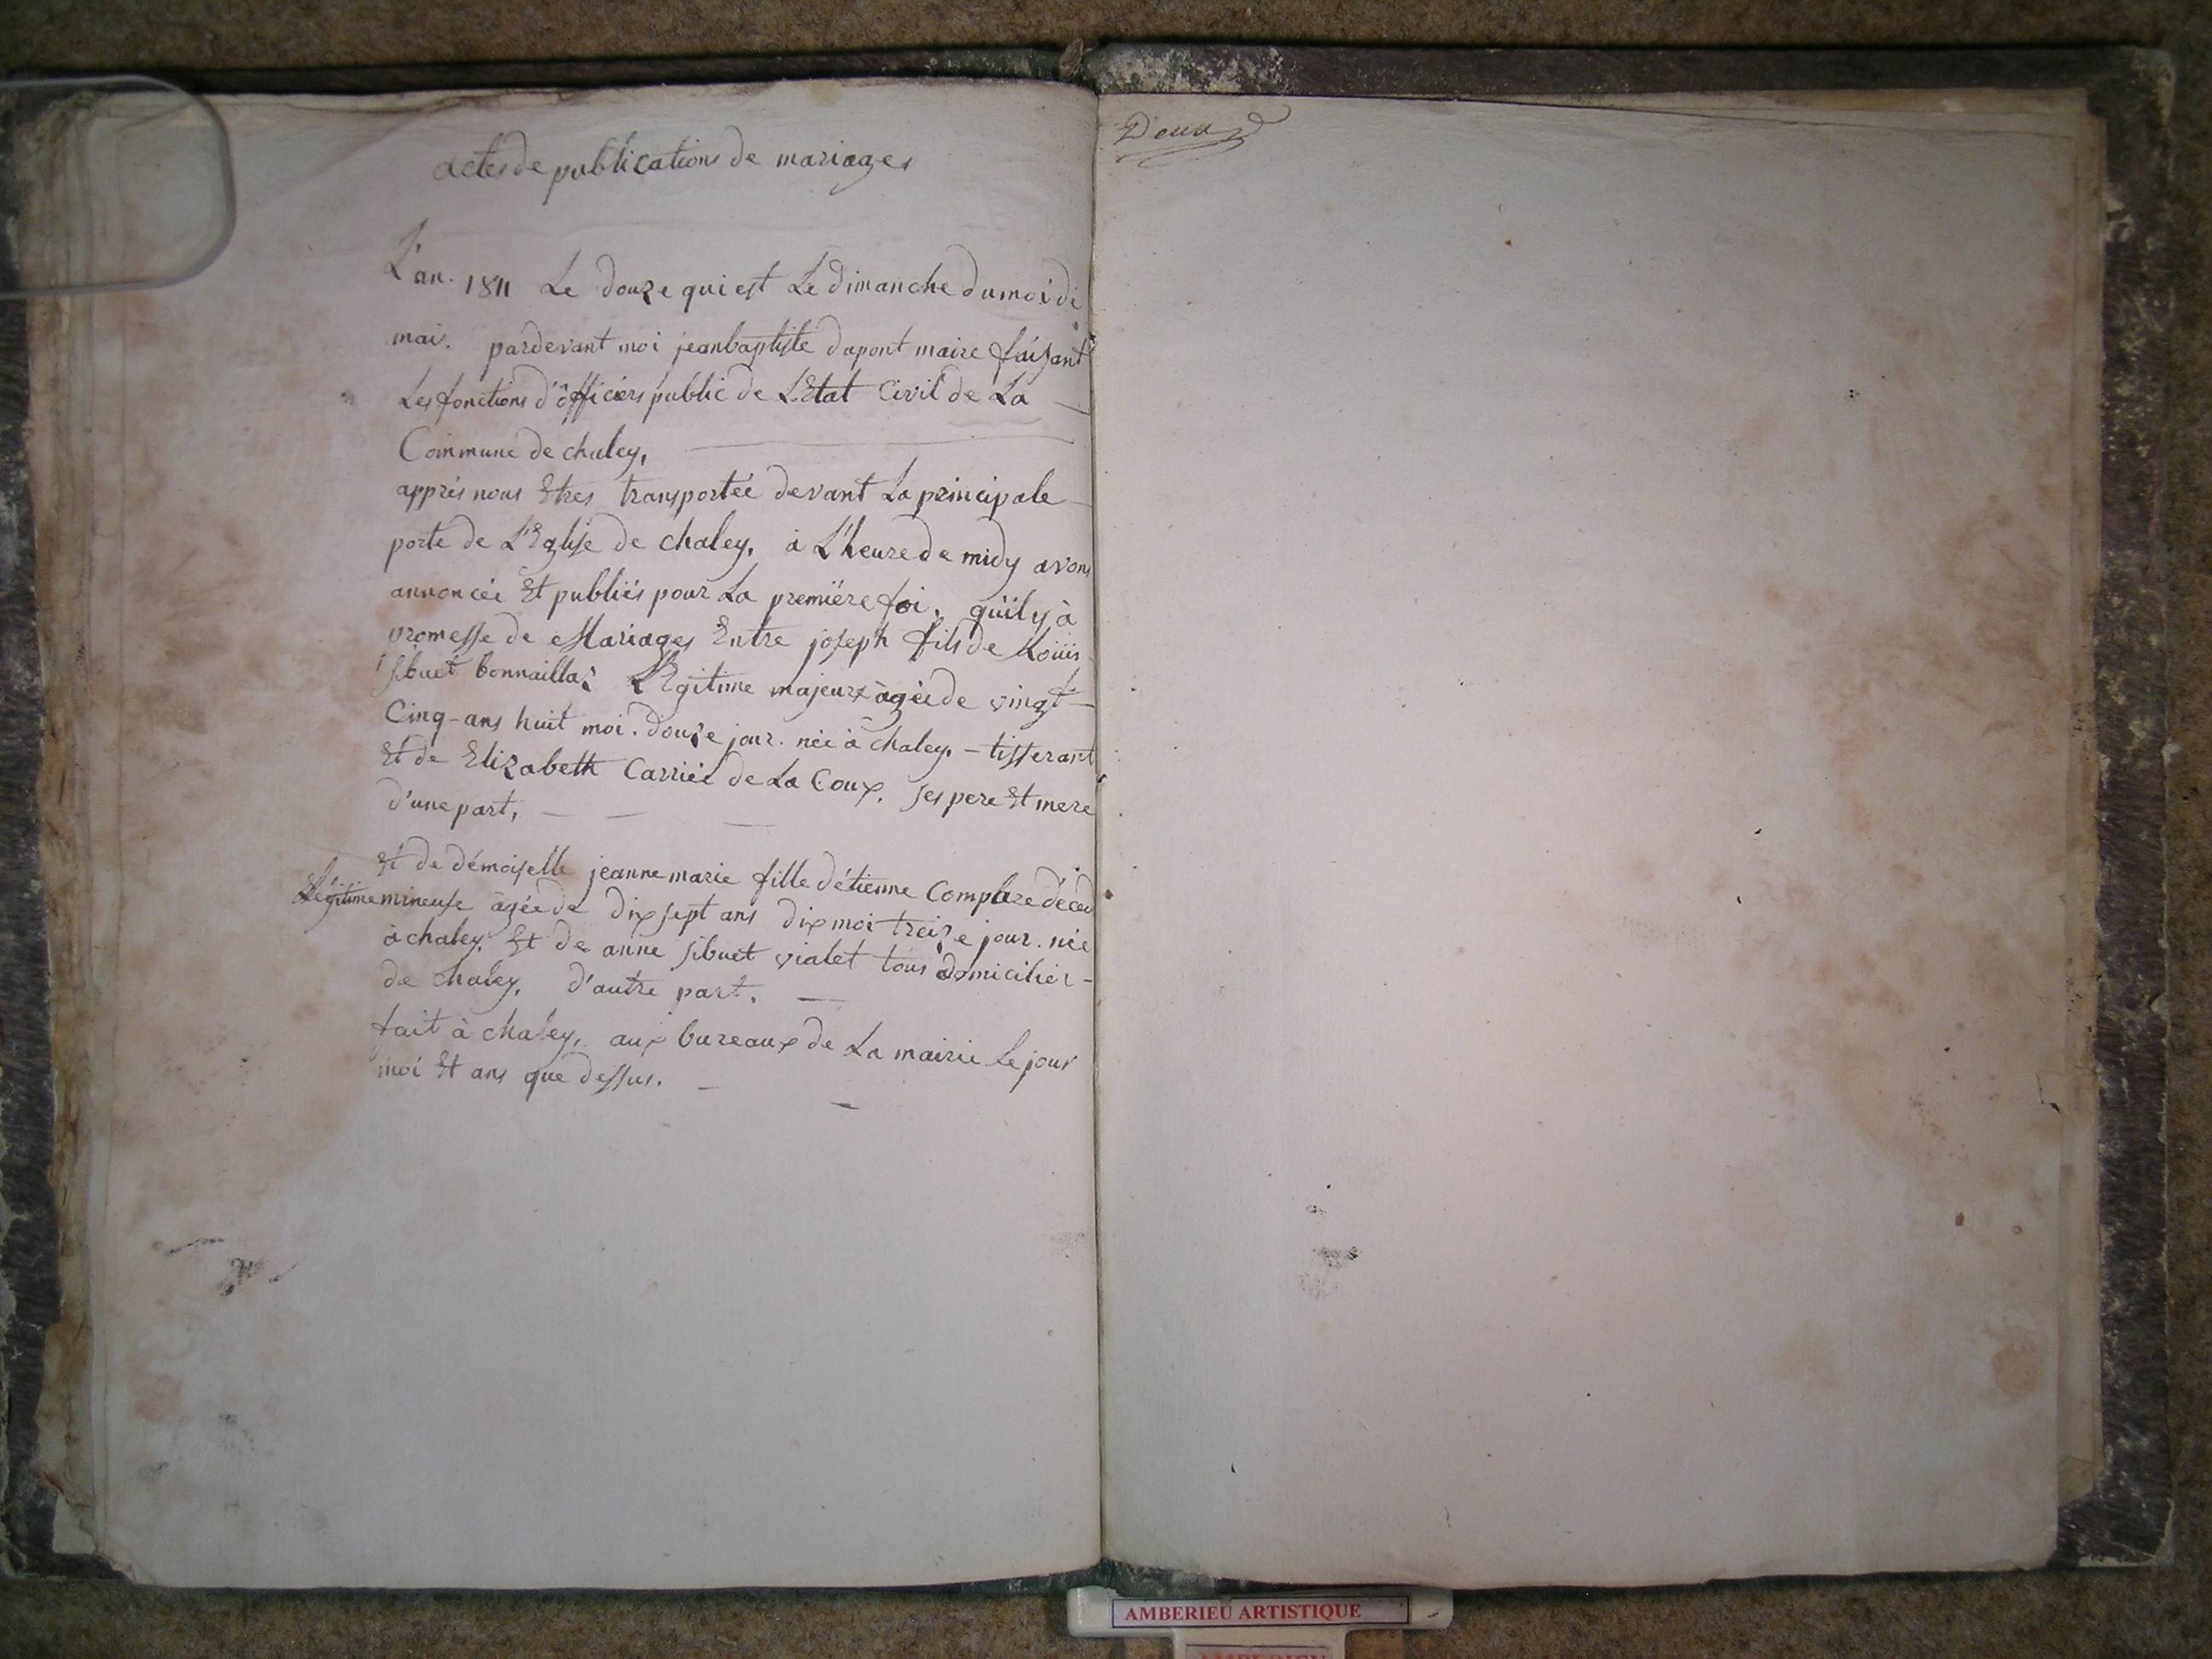 actes de publications de mariages
L'an. 1811 Le douze qui est Le dimanche du moi de
mai. pardevant moi jeanbaptiste dupont maire faisant
Les fonctions d'officiers public de L'Etat Civil de La
Commune de chaley,
apprés nous Etres transportée devant La principale
porte de L'Eglise de chaley, à L'heure de midy avons
annoncée Et publiés pour La premiére foi, qu'il y à
promesse de Mariages Entre joseph fils de Loüis
sibuet bonnaillas LEgitime majeur âgée de vingt
Cinq-ans huit moi. douze jour. née à chaley, - tisserant
Et de Elizabeth Carrier de La Coux, ses pere Et mere
d'une part,
Et de démoiselle jeanne marie fille d'étienne Complere décéd
Légitime mineuse âgée de dix sept ans dix moi treize jour. née
à chaley, Et de anne sibuet vialet tous domicilier -
de chaley, d'autre part,
fait à chaley, aux bureaux de La mairie Le jour
moi Et ans que dessus.
Doux
AMBERIEU ARTISTIQUE
AMBERIEU